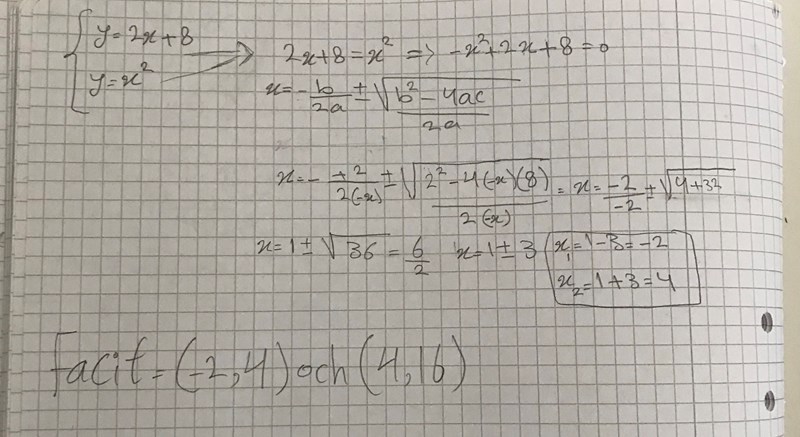 y=2x+8
y=x² 2x+8=x² => -x²+2x+8=0
x=-b/2a ± √(b²-4ac)/2a
x=- +2/2(-x) ± √(2²-4(-x)(8))/2(-x) = x= -2/-2 ± √4+32
x=1±√36 = 6/2 x=1±3 x₁=1-3=-2
x₂=1+3=4
Facit=(-2,4)och(4,16)